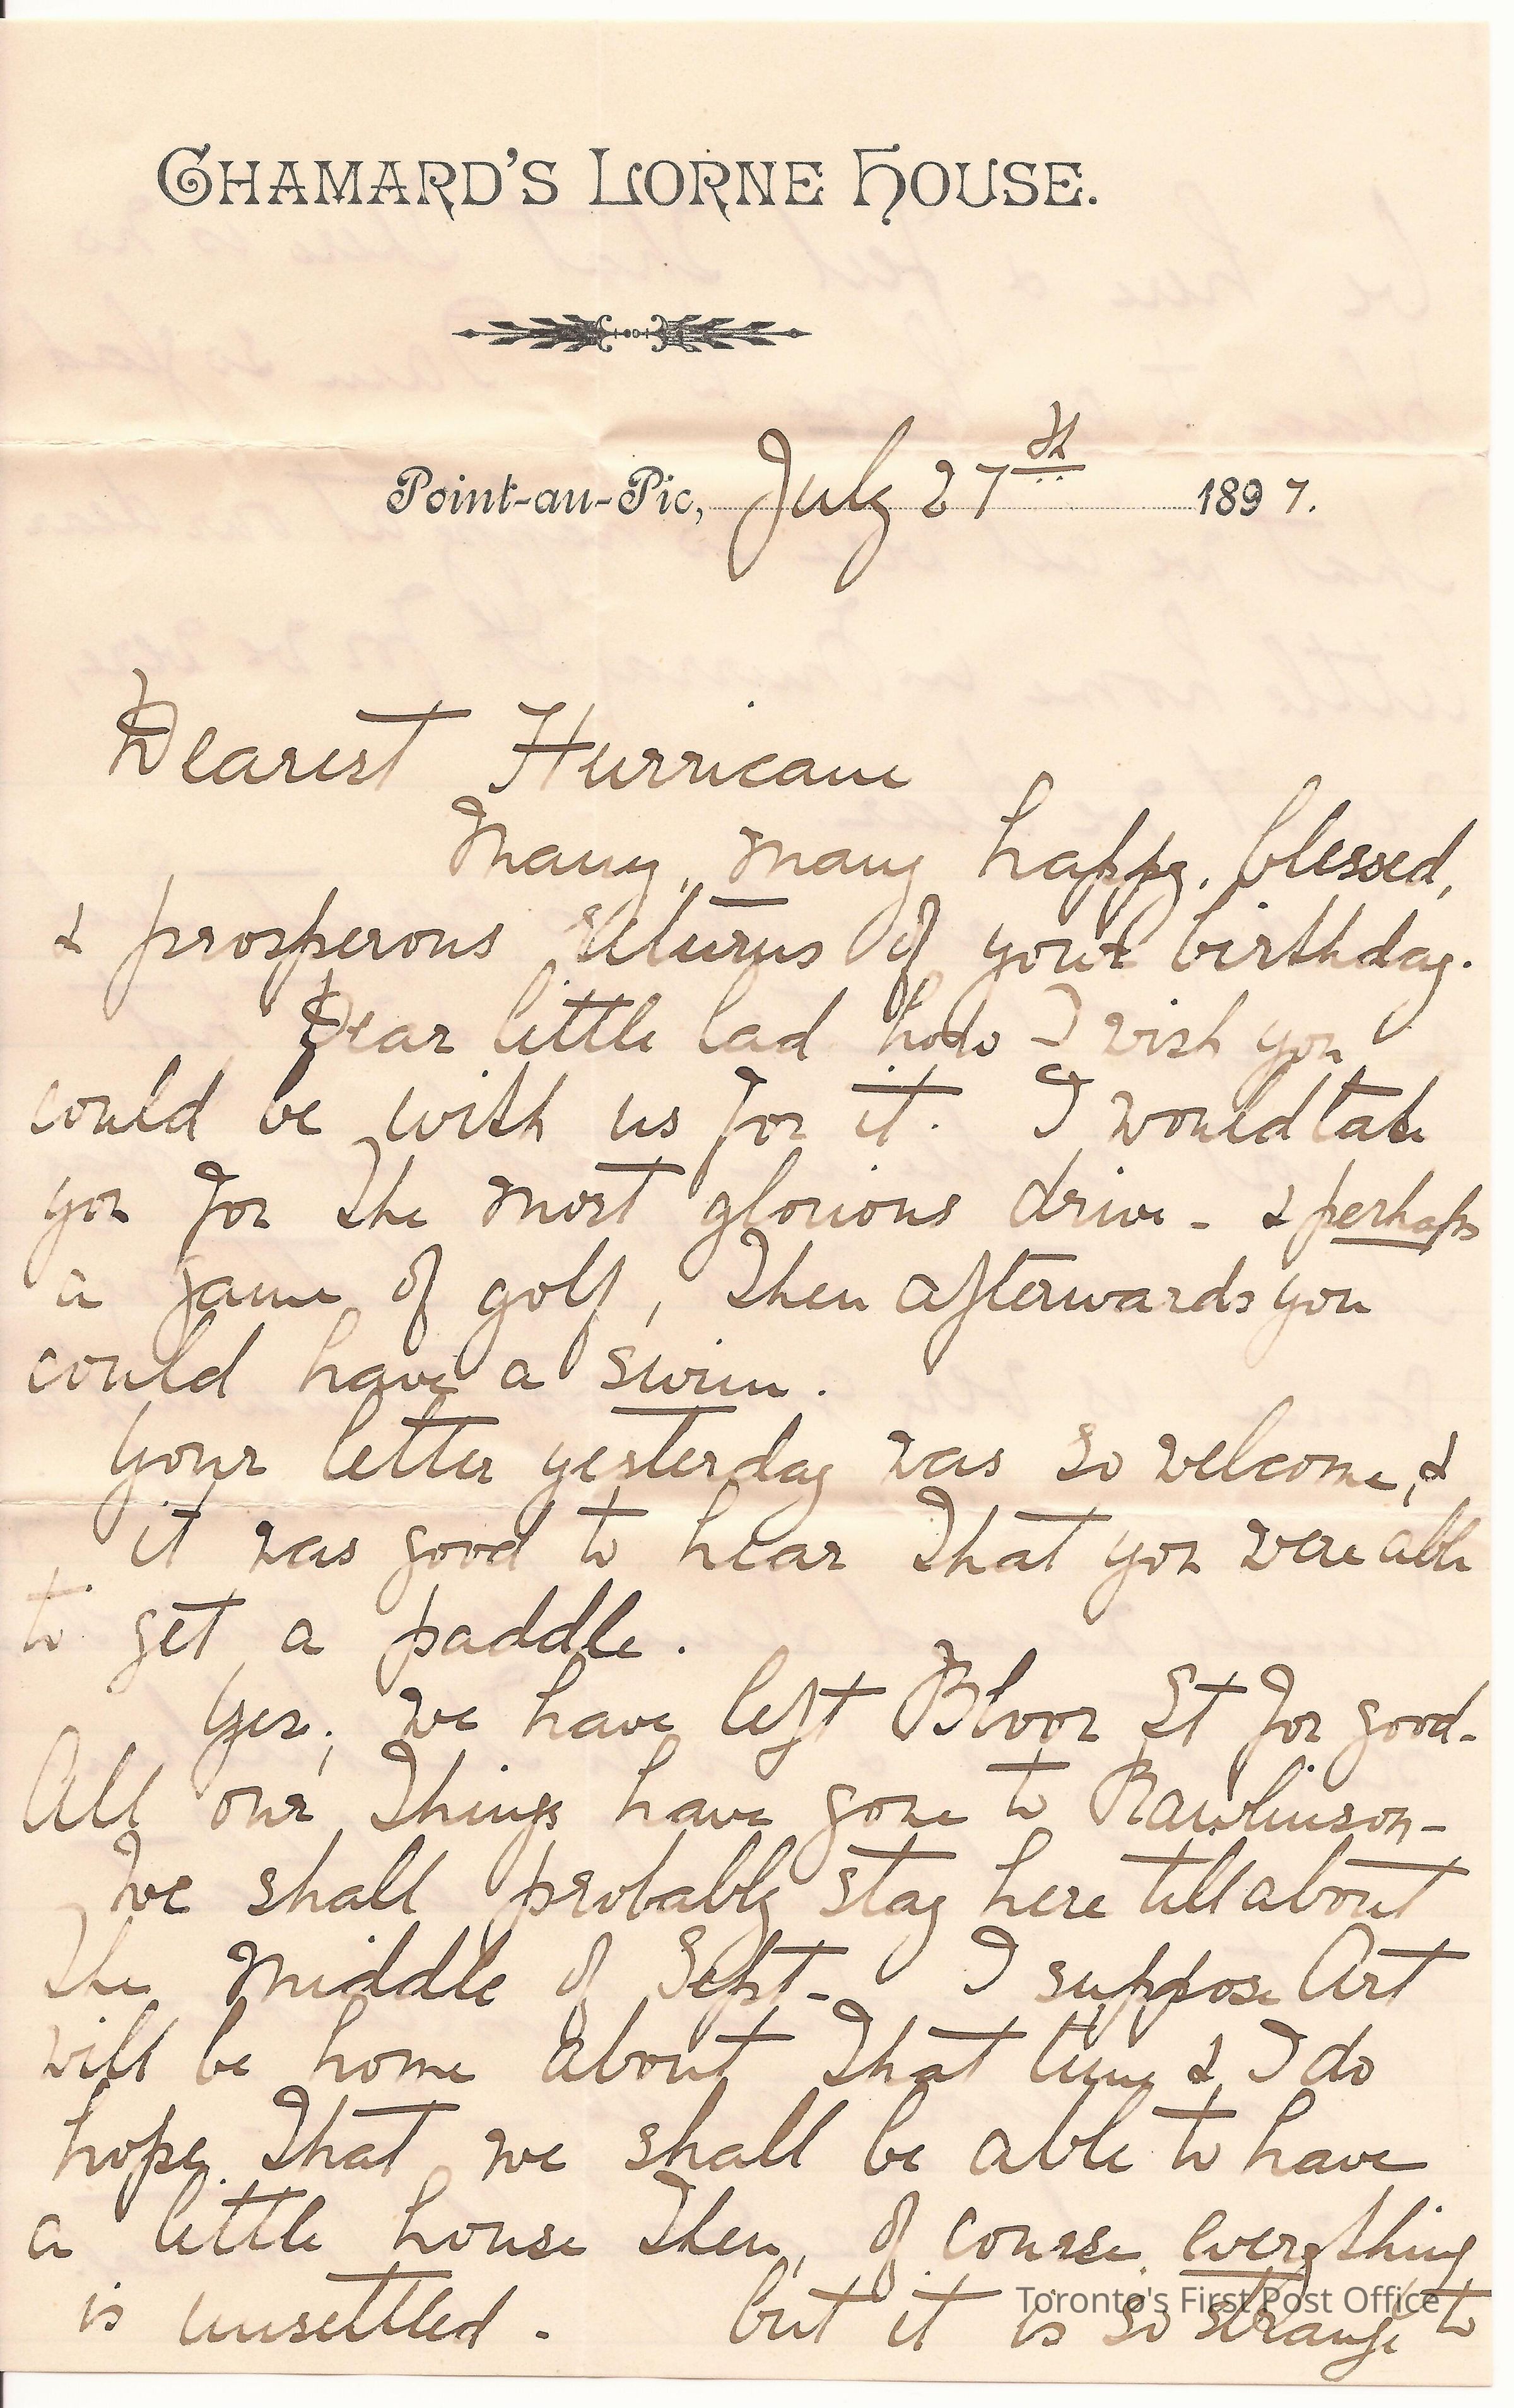 CHAMARD'S LORNE HOUSE.
Point-au-Pic, July 27th 1897.
Dearest Hurricane
Many, many happy, blessed,
& prosperous returns of your birthday.
Dear little lad how I wish you
could be with us for it. I would take
you for the most glorious drive - & perhaps
a game of golf, then afterwards you
could have a swim.
Your letter yesterday was so welcome, &
it was good to hear that you were able
to get a paddle.
Yes, we have left Bloor St for good-
All our things have gone to Rawlinson-
We shall probably stay here till about
the middle of Sept- I suppose Art
will be home about that time & I do
hope that we shall be able to have
a little house then, of course everything
is unsettled - but it is so strange to
Toronto's First Post Office